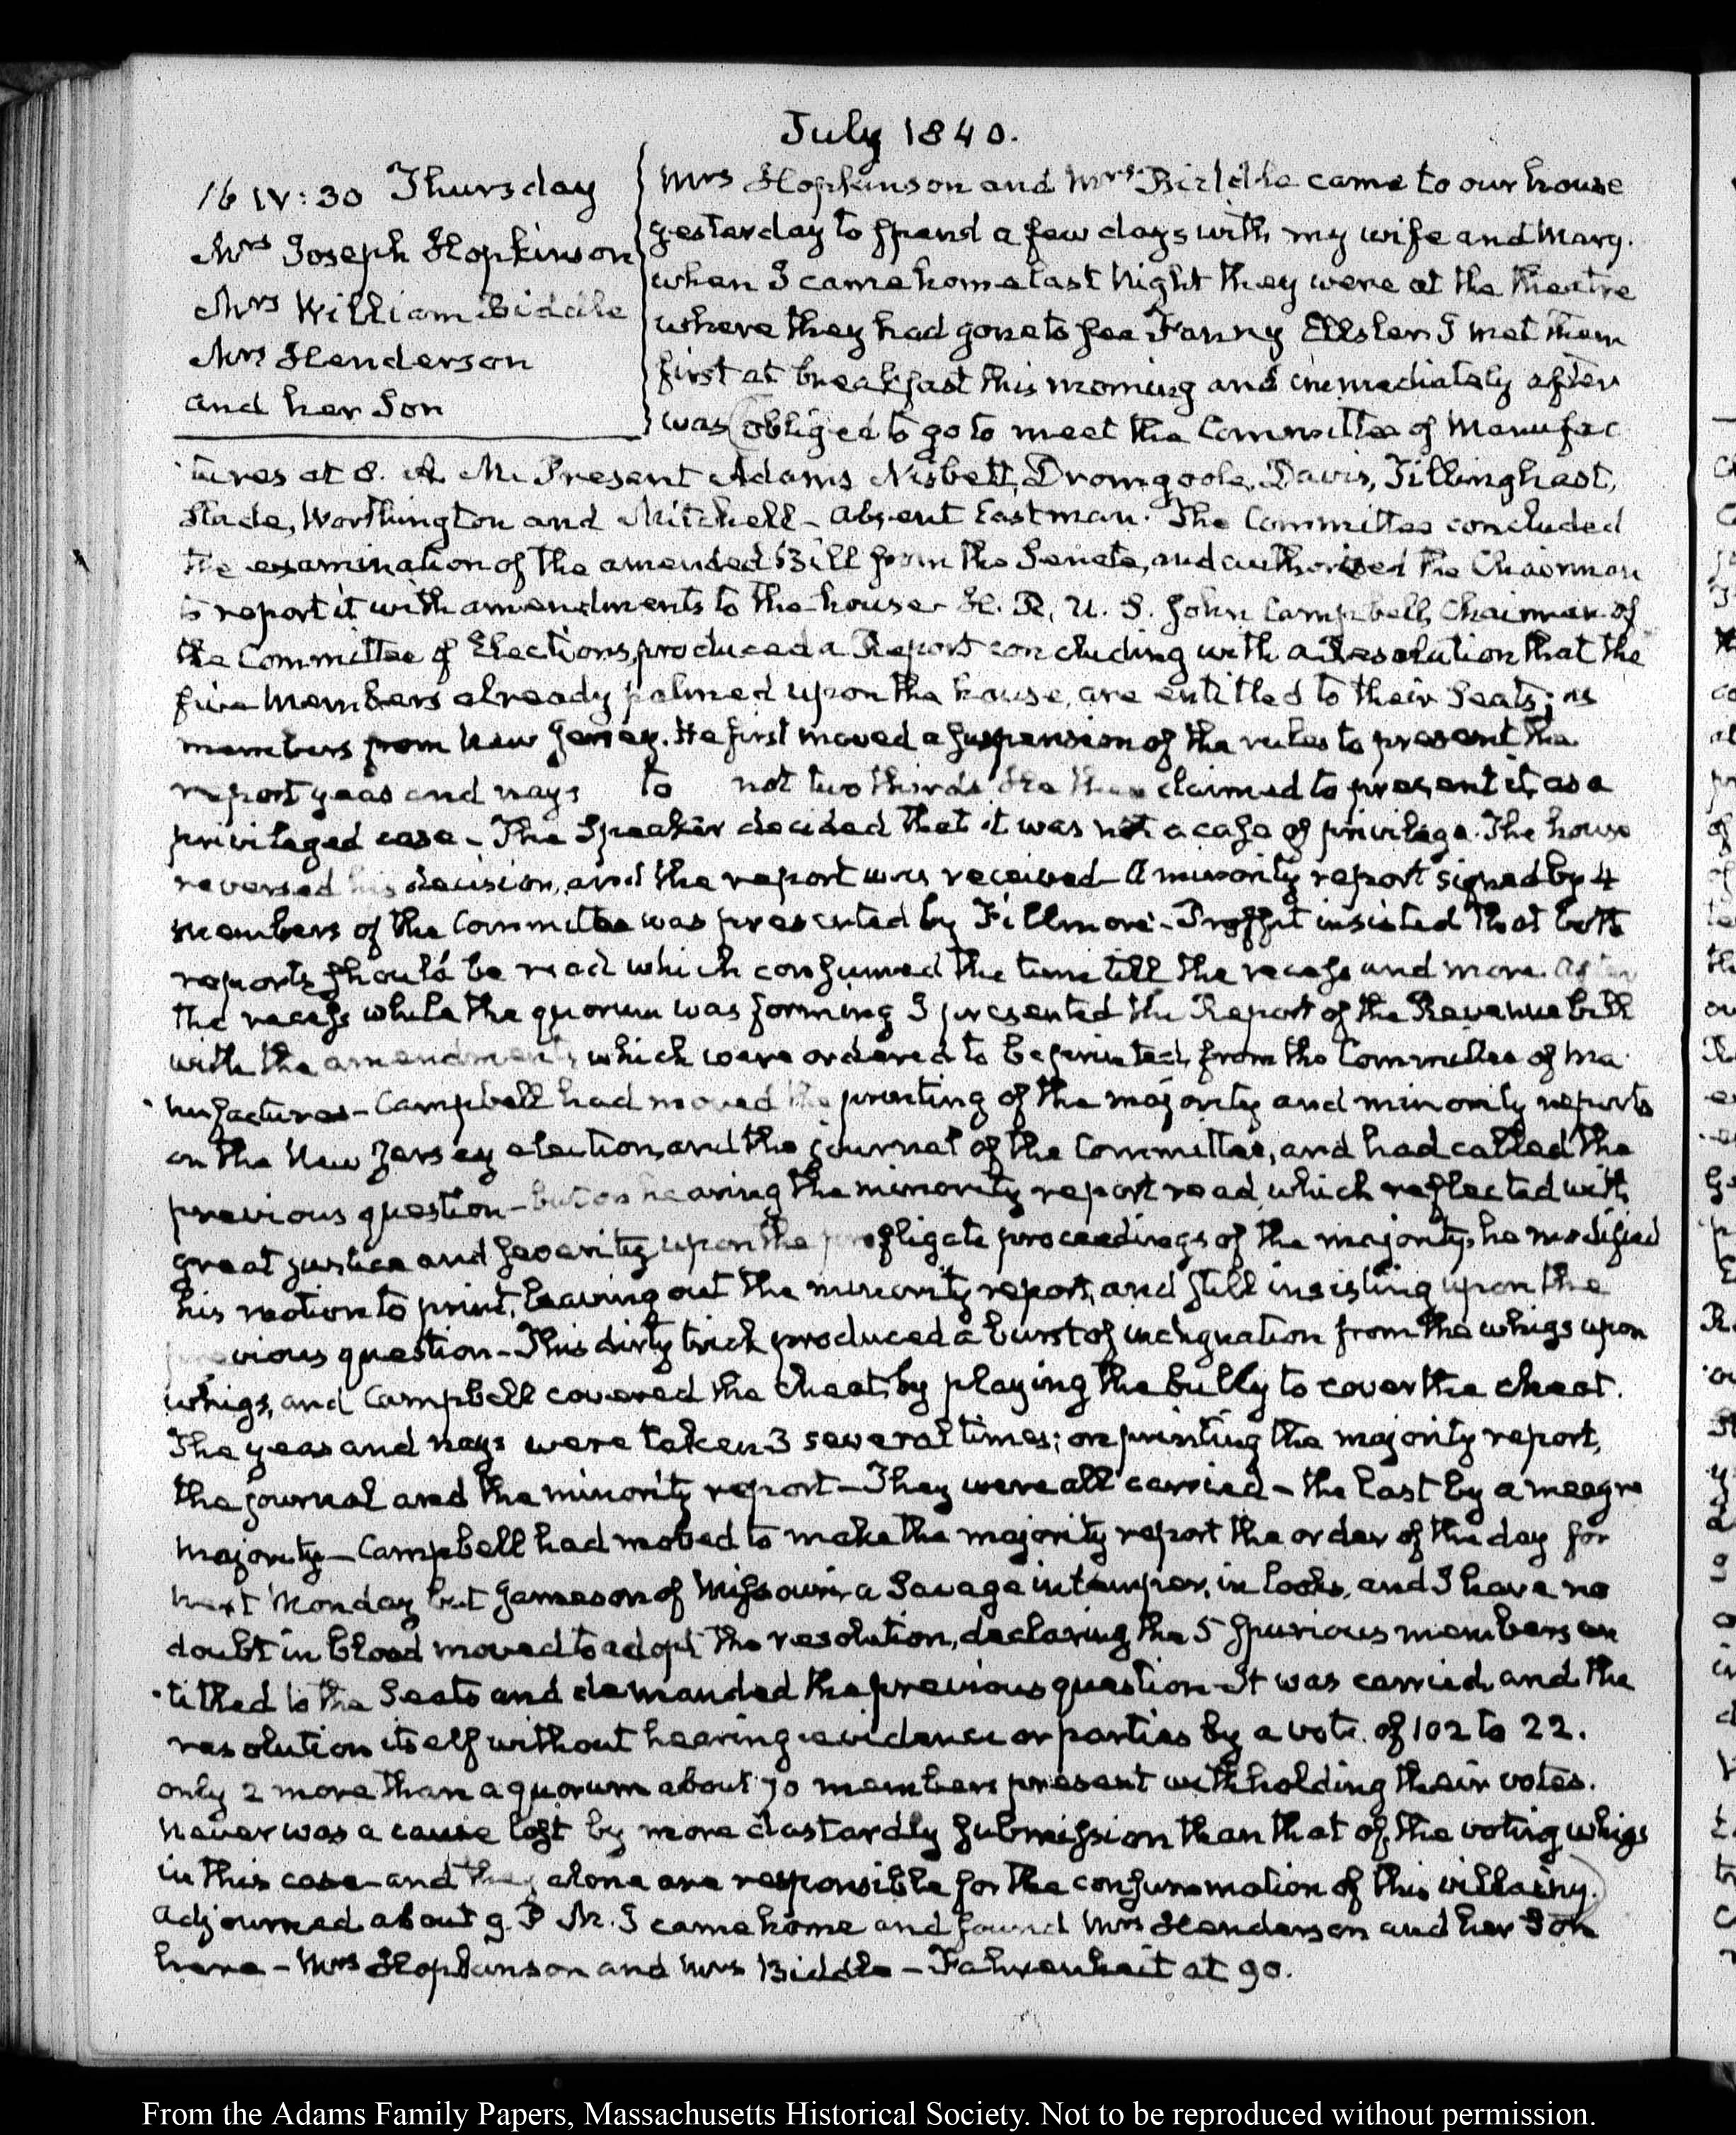 July 1840.
16 IV:30 Thursday
Mrs Joseph Hopkinson
Mrs William Biddle
Mrs Henderson
and her Son
Mrs Hopkinson and Mrs Biddle came to our house
yesterday to spend a few days with my wife and Mary.
when I came home last Night they were at the theatre
where they had gone to see Fanny Ellsler I met them
first at breakfast this morning and immediately after
was obliged to go to meet the Committee of Manufac
tures at 8. A. M. Present Adams Nisbett, Dromgoole, Davis, Tillinghast,
Slade, Worthington and Mitchell - absent Eastman. The Committee concluded
the examination of the amended Bill from the Senate, and authorised the Chairman
to report it with amendments to the house - H. R. U. S. John Campbell, Chairman of
the Committee of Elections, produced a Report concluding with a Resolution that the
five Members already palmed upon the house, are entitled to their Seats; as
members from New Jersey. He first moved a suspension of the rules to present the
report yeas and nays to not two thirds He then claimed to present it, as a
privileged case - The Speaker decided that it was not a case of privilege. The house
reversed his decision, and the report was received - A minority report signed by 4
members of the Committee was presented by Fillmore - Proffit insisted that both
reports should be read which consumed the time till the recess and more. After
the recess while the quorum was forming I presented the Report of the Revenue bill
with the amendments, which were ordered to be printed, from the Committee of Ma
nufactures - Campbell had moved the printing of the majority and minority reports
on the New Jersey election, and the journal of the Committee, and had called the
previous question - but on hearing the minority report read, which reflected with
great justice and severity upon the profligate proceedings of the majority, he modified
his motion to print, leaving out the minority report, and still insisting upon the
previous question - This dirty trick produced a burst of indignation from the whigs upon
whigs, and Campbell covered the cheat, by playing the bully to cover the cheat.
The yeas and nays were taken 3 several times; on printing the majority report,
the journal and the minority report - They were all carried - the last by a meagre
Majority - Campbell had moved to make the majority report the order of the day for
next Monday but Jameson of Missouri, a Savage in temper, in looks, and I have no
doubt in blood moved to adopt the resolution, declaring the 5 spurious members en
titled to the Seats and demanded the previous question - It was carried, and the
resolution itself without hearing evidence or parties by a vote of 102 to 22.
only 2 more than a quorum about 70 members present withholding their votes.
Never was a cause lost by more dastardly submission than that of the voting whigs
in this case - and they alone are responsible for the consummation of this villainy.
adjourned about 9. P. M. I came home and found Mrs Henderson and her Son
here - Mrs Hopkinson and Mrs Biddle - Fahrenheit at 90.
From the Adams Family Papers, Massachusetts Historical Society. Not to be reproduced without permission.